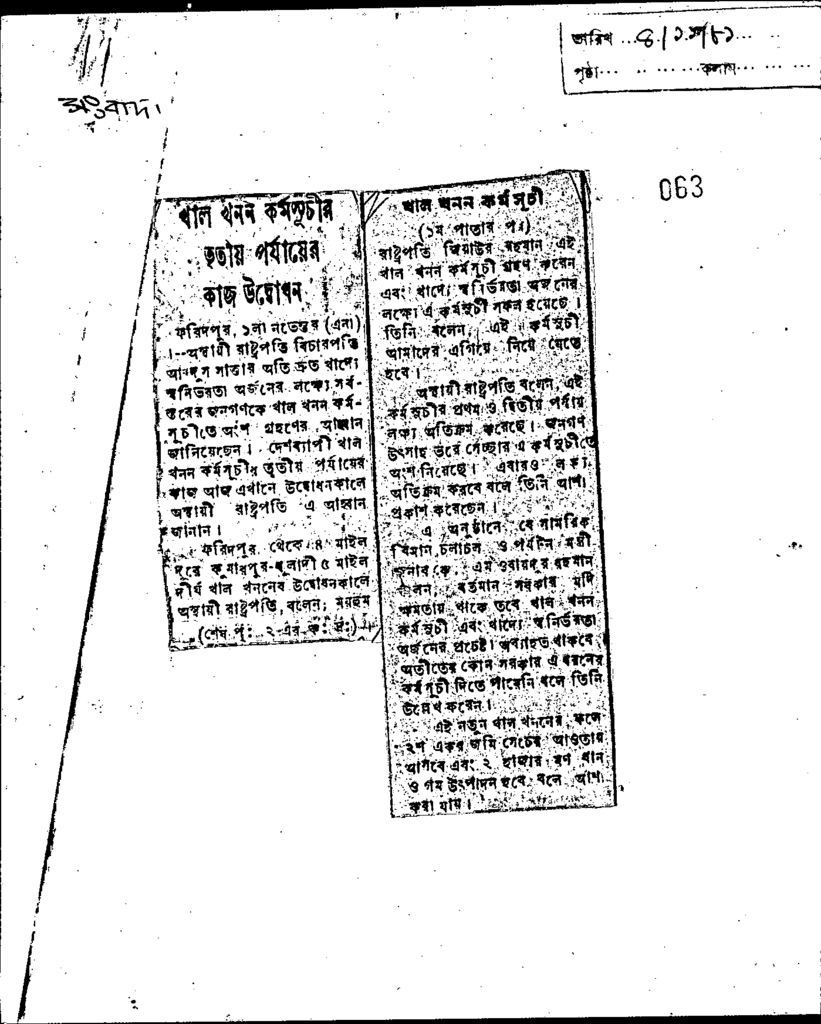 তারিখ ...
পৃষ্ঠা... .. ... ... কলাম... ... ...
সংবাদ।
063
খাল খনন কর্মসূচীর
তৃতীয় পর্যায়ের
কাজ উদ্বোধন
ফরিদপুর, ১লা নভেম্বর (এনা)
।--অস্থায়ী রাষ্ট্রপতি বিচারপতি
আবদুস সাত্তার অতি দ্রুত খাদ্যে
স্বনির্ভরতা অর্জনের লক্ষ্যে সর্ব-
স্তরের জনগণকে খাল খনন কর্ম-
সূচীতে অংশ গ্রহণের আহ্বান
জানিয়েছেন। দেশব্যাপী খাল
খনন কর্মসূচীর তৃতীয় পর্যায়ের
কাজ আজ এখানে উদ্বোধনকালে
অস্থায়ী রাষ্ট্রপতি এ আহ্বান
জানান।
ফরিদপুর থেকে ৪ মাইল
দূরে কুমারপুর- ৫ মাইল
দীর্ঘ খাল খননের উদ্বোধনকালে
অস্থায়ী রাষ্ট্রপতি বলেন, মরহুম
(শেষ পৃঃ ২-এর কঃ দ্রঃ)
খাল খনন কর্মসূচী
(১ম পাতার পর)
রাষ্ট্রপতি জিয়াউর রহমান এই
খাল খনন কর্মসূচী গ্রহণ করেন
এবং খাদ্যে স্বনির্ভরতা অর্জনের
লক্ষ্যে এ কর্মসূচী সফল হয়েছে।
তিনি বলেন, এই কর্মসূচী
আমাদের এগিয়ে নিয়ে যেতে
হবে।
অস্থায়ী রাষ্ট্রপতি বলেন, এই
কর্মসূচীর প্রথম ও দ্বিতীয় পর্যায়
লক্ষ্য অতিক্রম করেছে। জনগণ
উৎসাহ ভরে স্বেচ্ছায় এ কর্মসূচীতে
অংশ নিয়েছে। এবারও লক্ষ্য
অতিক্রম করবে বলে তিনি আশা
প্রকাশ করেছেন।
এ অনুষ্ঠানে বেসামরিক
বিমান চলাচল ও পর্যটন মন্ত্রী
জনাব কে, এম ওবায়দুর রহমান
বলেন, বর্তমান সরকার যদি
ক্ষমতায় থাকে তবে খাল খনন
কর্মসূচী এবং খাদ্যে স্বনির্ভরতা
অর্জনের প্রচেষ্টা অব্যাহত থাকবে।
অতীতের কোন সরকার এ ধরনের
কর্মসূচী দিতে পারেনি বলে তিনি
উল্লেখ করেন।
এই নতুন খাল খননের ফলে
২শ একর জমি সেচের আওতায়
আসবে এবং ২ হাজার মণ ধান
ও গম উৎপাদন হবে বলে আশা
করা যায়।